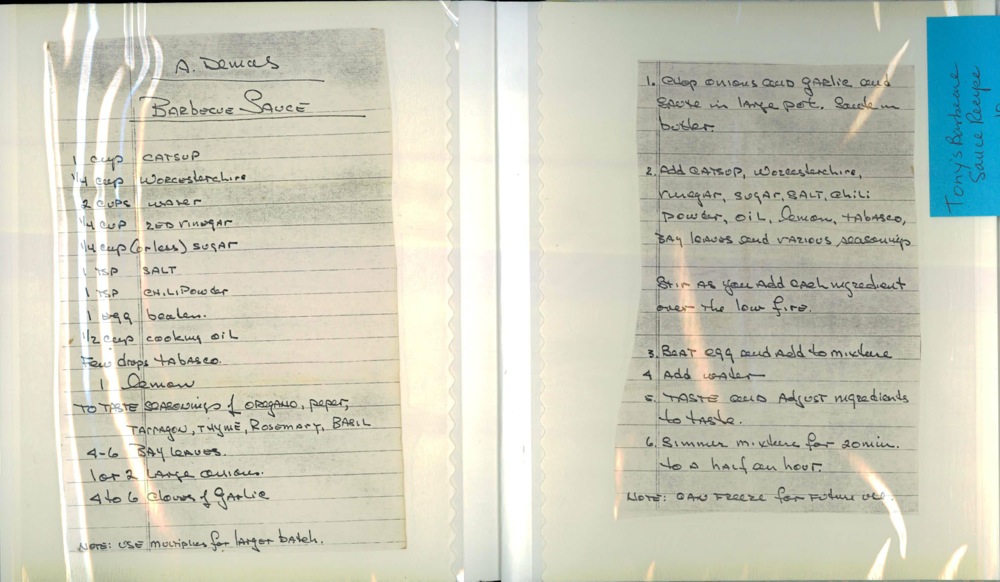 A. Demas
Barbecue Sauce
1 cup CATSUP
1/4 cup Worcestershire
2 cups water
1/4 cup red vinegar
1/4 cup (or less) sugar
1 TSP SALT
1 TSP CHILI Powder
1 egg beaten.
1/2 cup cooking oil
Few drops tabasco.
1 lemon
TO TASTE SEASONINGS of OREGANO, peper,
TARRAGON, THYME, ROSEMARY, BASIL
4-6 BAY leaves.
1 or 2 large onions.
4 to 6 cloves of garlic
NOTE: USE multiples for larger batch.
1. Chop onions and garlic and
sauté in large pot. Sauté in
butter.
2. Add CATSUP, Worcestershire,
vinegar, sugar, SALT, chili
powder, oil, lemon, tabasco,
BAY leaves and various seasonings
Stir as you add each ingredient
over the low fire.
3. Beat egg and add to mixture
4 Add water
5. TASTE and Adjust ingredients
to taste.
6. Simmer mixture for 20 min.
to a half an hour.
NOTE: CAN FREEZE for future use.
Tony's Barbecue
Sauce Recipe